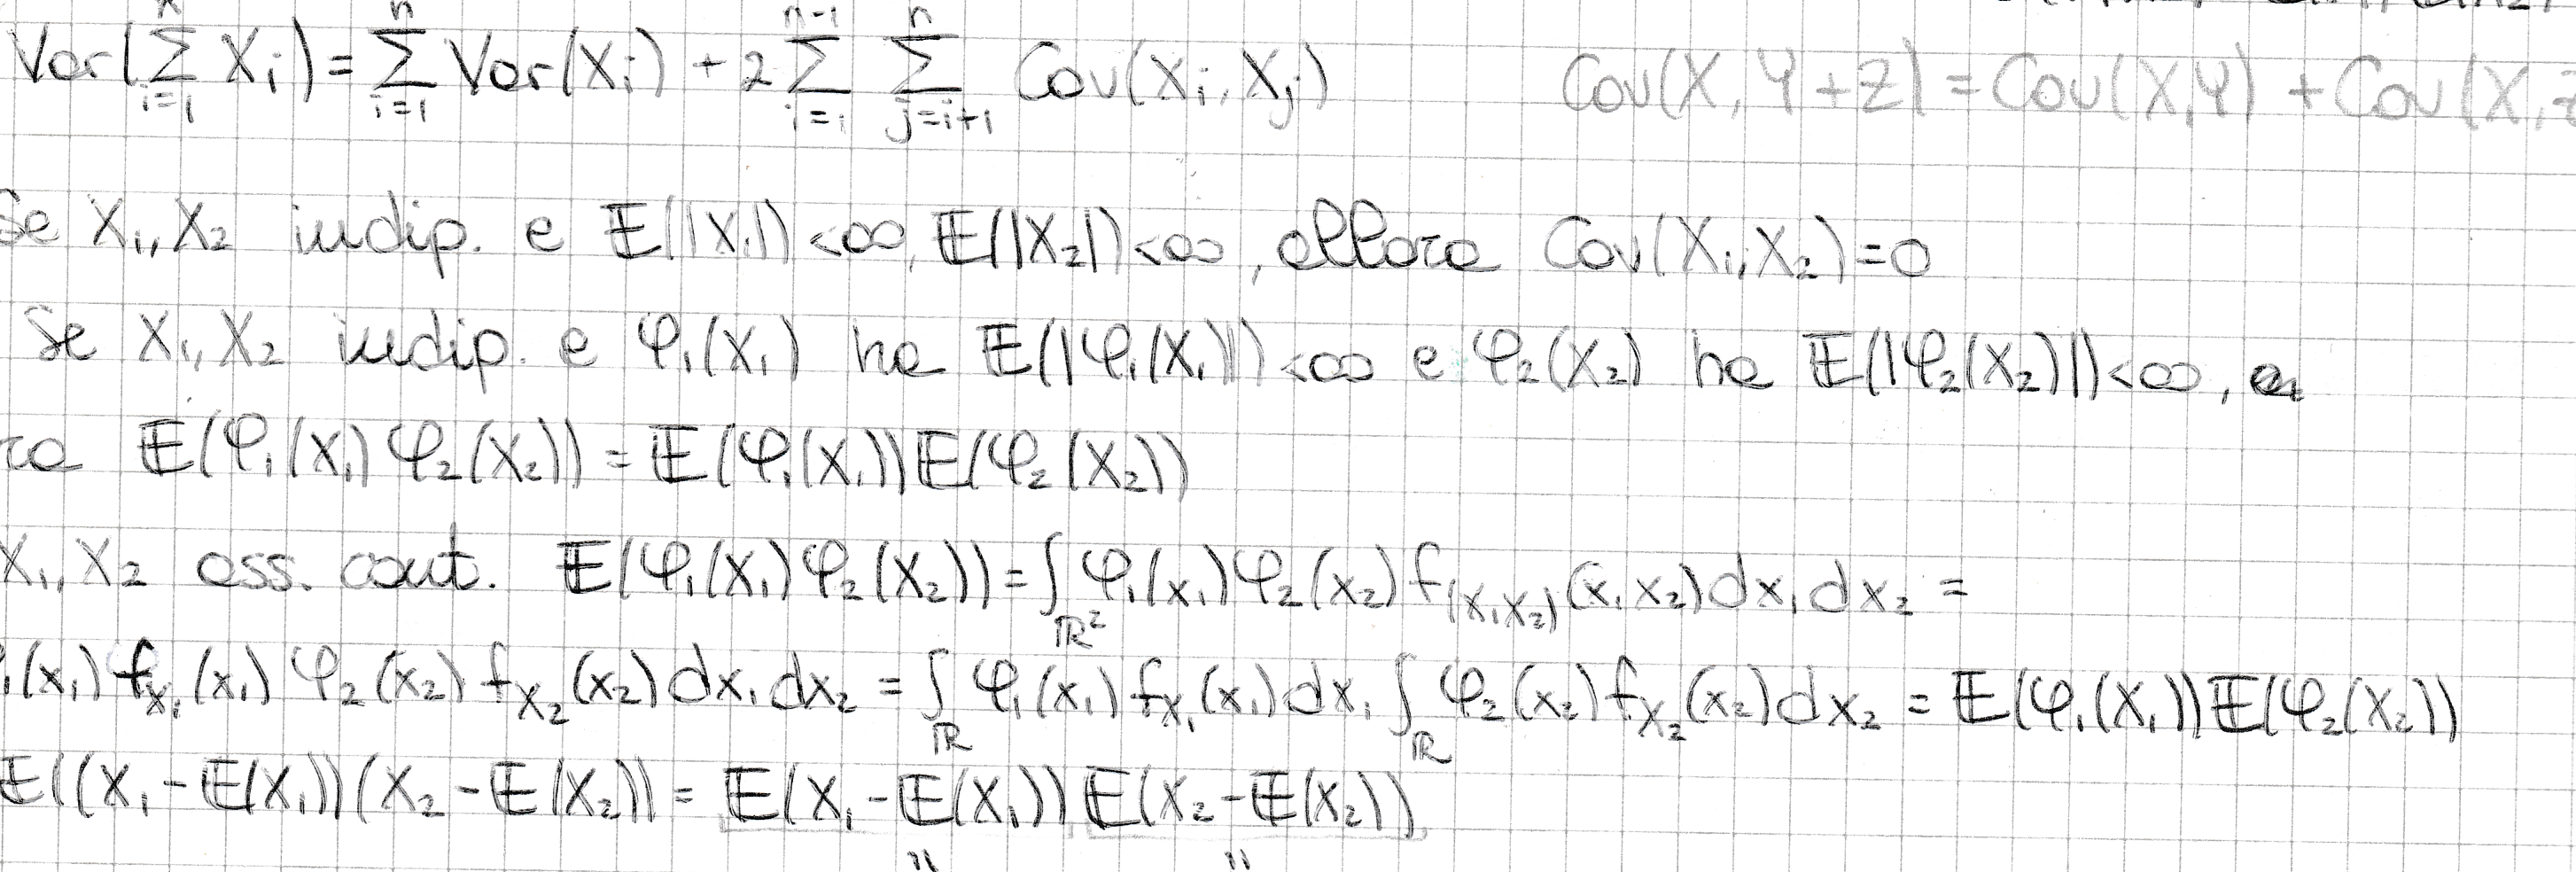 Var(∑_{i=1}^{n} X_i) = ∑_{i=1}^{n} Var(X_i) + 2 ∑_{i=1}^{n-1} ∑_{j=i+1}^{n} Cov(X_i, X_j) Cov(X, Y+Z) = Cov(X,Y) + Cov(X,Z
Se X₁, X₂ indip. e 𝔼(|X₁|) <∞, 𝔼(|X₂|) <∞, allora Cov(X₁,X₂)=0
Se X₁, X₂ indip. e φ₁(X₁) ha 𝔼(|φ₁(X₁)|) <∞ e φ₂(X₂) ha 𝔼(|φ₂(X₂)|) <∞,
ra 𝔼(φ₁(X₁) φ₂(X₂)) = 𝔼(φ₁(X₁)) 𝔼(φ₂(X₂))
X₁, X₂ ass. cont. 𝔼(φ₁(X₁) φ₂(X₂)) = ∫_{ℝ²} φ₁(x₁) φ₂(x₂) f_{(X₁X₂)}(x₁ x₂) dx₁ dx₂ =
₁(x₁) f_{X₁}(x₁) φ₂(x₂) f_{X₂}(x₂) dx₁ dx₂ = ∫_ℝ φ₁(x₁) f_{X₁}(x₁) dx₁ ∫_ℝ φ₂(x₂) f_{X₂}(x₂) dx₂ = 𝔼(φ₁(X₁)) 𝔼(φ₂(X₂))
𝔼((X₁ - 𝔼(X₁))(X₂ - 𝔼(X₂)) = 𝔼(X₁ - 𝔼(X₁)) 𝔼(X₂ - 𝔼(X₂))